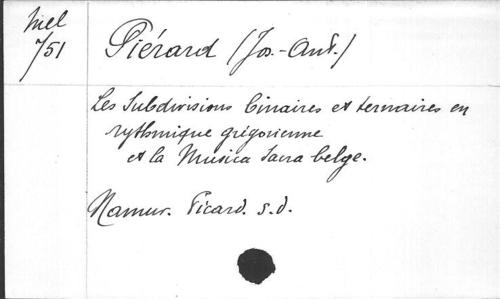 Mel
7/51
Piérard (Jos.-Ant.)
Les Subdivisions binaires et ternaires en
rythmique grégorienne
et la Musica Sacra belge.
Namur. Picard. s.d.